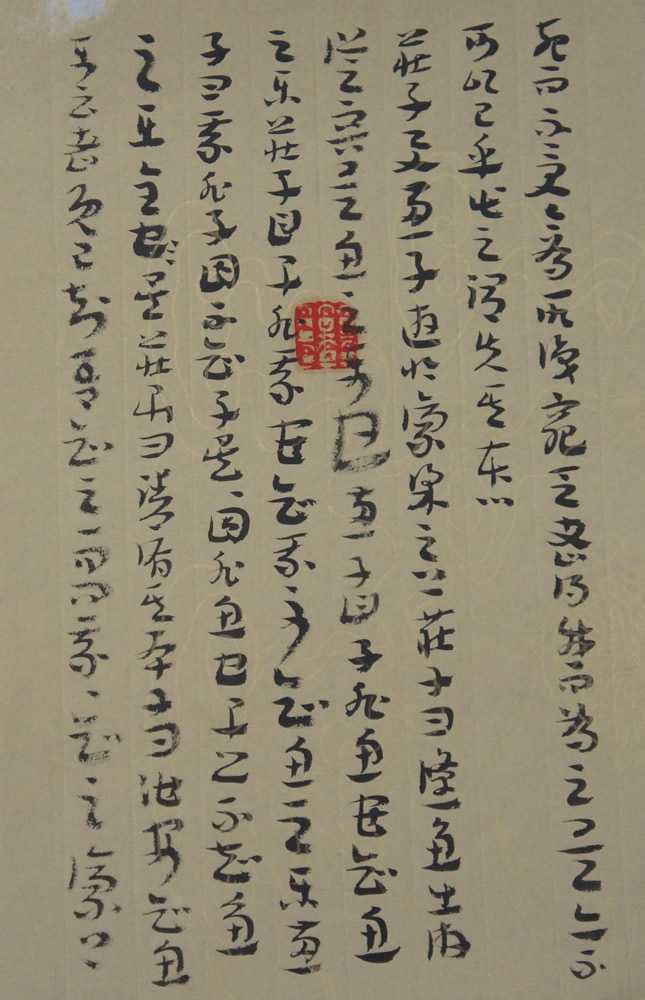 死而不受今為所識窮乏者得我而為之是亦不
可以已乎此之謂失其本心
莊子與惠子遊於濠梁之上莊子曰儵魚出游
從容是魚之樂也惠子曰子非魚安知魚
之樂莊子曰子非我安知我不知魚之樂惠
子曰我非子固不知子矣子固非魚也子之不知魚
之樂全矣莊子曰請循其本子曰汝安知魚
樂云者既已知吾知之而問我我知之濠上